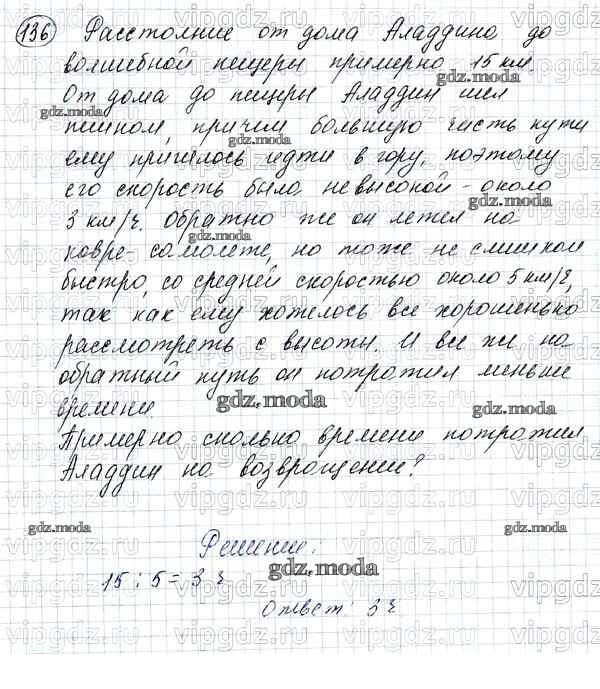 136 Расстояние от дома Аладдина до
волшебной пещеры примерно 15 км.
От дома до пещеры Аладдин шел
пешком, причем большую часть пути
ему пришлось идти в гору, поэтому
его скорость была невысокой - около
3 км/ч. Обратно же он летел на
ковре-самолете, но тоже не слишком
быстро, со средней скоростью около 5 км/ч,
так как ему хотелось все хорошенько
рассмотреть с высоты. И все же на
обратный путь он потратил меньше
времени
Примерно сколько времени потратил
Аладдин на возвращение?
Решение:
15 : 5 = 3 ч
Ответ: 3 ч
gdz.moda
vipgdz.ru